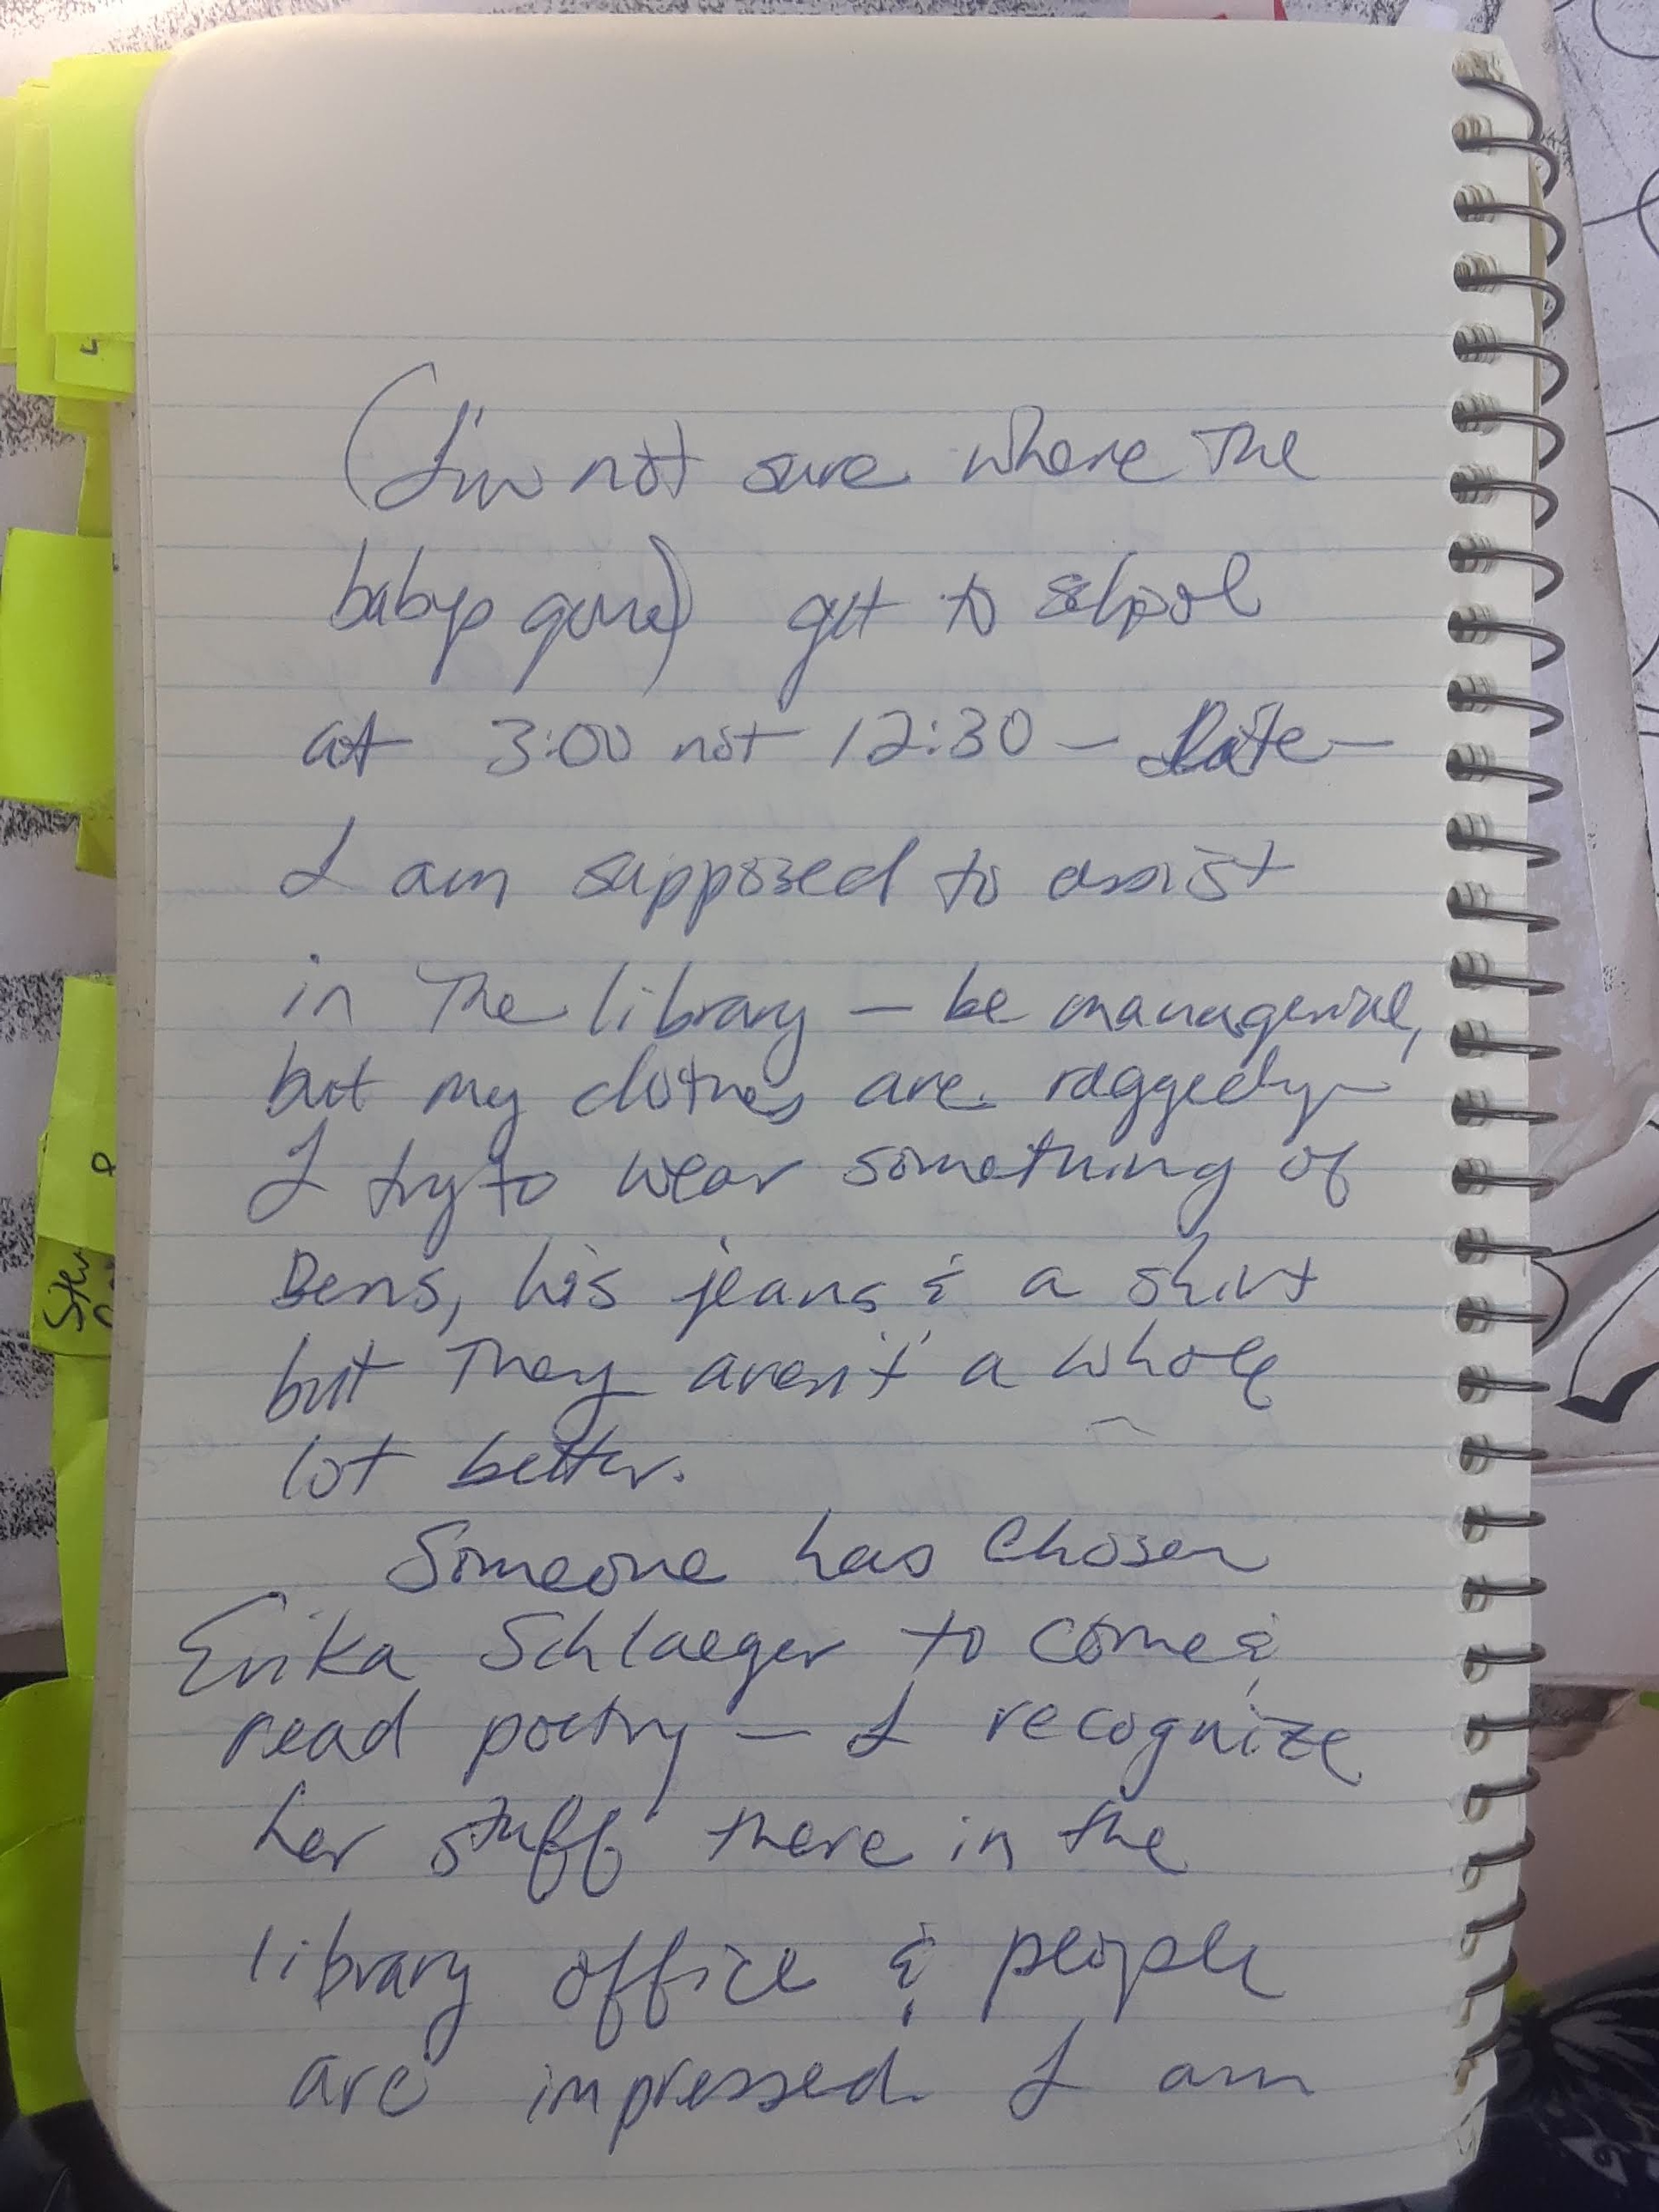 (I'm not sure where the
babys gone) get to school
at 3:00 not 12:30 — Late —
I am supposed to assist
in The library — be managerial,
but my clothes are raggedy —
I try to wear something of
Bens, his jeans & a shirt
but They aren't a whole
lot better.
Someone has chosen
Erika Schlaeger to come &
read poetry — I recognize
her stuff there in the
library office & people
are impressed. I am